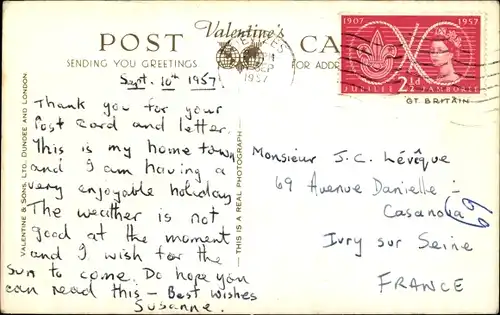 Valentine's
POST CARD
SENDING YOU GREETINGS
FOR ADDRESS
SEP
1957
1907 1957
2½d
JUBILEE JAMBOREE
GT. BRITAIN
Sept. 10th 1957!
Thank you for your
Post Card and letter.
This is my home town
and I am having a
very enjoyable holiday
The weather is not
good at the moment
and I wish for the
sun to come. Do hope you
can read this – Best wishes
Susanne.
VALENTINE & SONS, LTD. DUNDEE AND LONDON
THIS IS A REAL PHOTOGRAPH
Monsieur J.C. Lévêque
69 Avenue Danielle –
Casanova
69
Ivry sur Seine
FRANCE